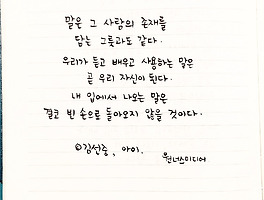 말은 그 사람의 존재를
담는 그릇과도 같다.
우리가 듣고 배우고 사용하는 말은
곧 우리 자신이 된다.
내 입에서 나오는 말은
결코 빈 손으로 돌아오지 않을 것이다.
©김선중, 아이.
원너스미디어